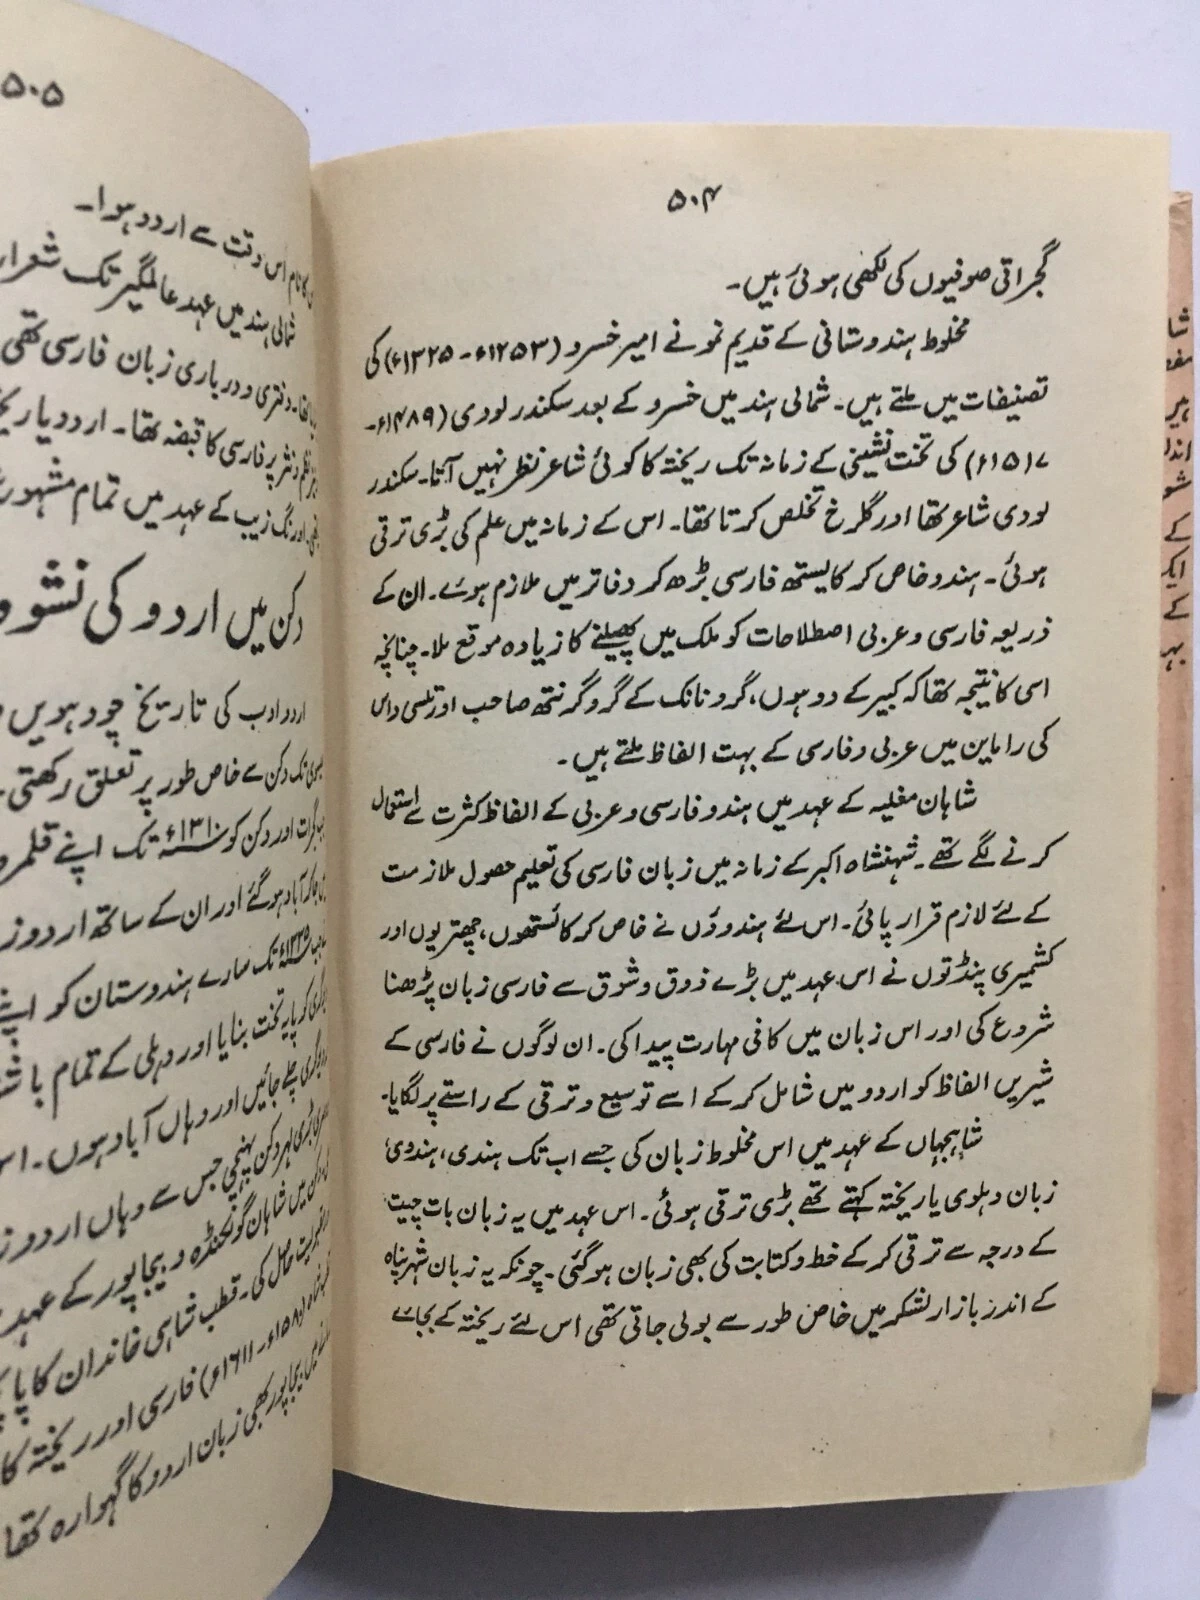 ۵۰۴
گجراتی صوفیوں کی لکھی ہوئی ہیں۔
مخلوط ہندوستانی کے قدیم نمونے امیر خسرو (۱۲۵۳ء۔ ۱۳۲۵ء) کی
تصنیفات میں ملتے ہیں۔ شمالی ہند میں خسرو کے بعد سکندر لودی (۱۴۸۹ء۔
۱۵۱۷ء) کی تخت نشینی کے زمانہ تک ریختہ کا کوئی شاعر نظر نہیں آتا۔ سکندر
لودی شاعر تھا اور گلرخ تخلص کرتا تھا۔ اس کے زمانہ میں علم کی بڑی ترقی
ہوئی۔ ہندو خاص کر کایستھ فارسی پڑھ کر دفاتر میں ملازم ہوئے۔ ان کے
ذریعہ فارسی و عربی اصطلاحات کو ملک میں پھیلنے کا زیادہ موقع ملا۔ چنانچہ
اسی کا نتیجہ تھا کہ کبیر کے دوہوں، گرونانک کے گروگرنتھ صاحب اور تلسی داس
کی راماین میں عربی و فارسی کے بہت الفاظ ملتے ہیں۔
شاہان مغلیہ کے عہد میں ہندو فارسی و عربی کے الفاظ کثرت سے استعمال
کرنے لگے تھے۔ شہنشاہ اکبر کے زمانہ میں زبان فارسی کی تعلیم حصول ملازمت
کے لئے لازم قرار پائی۔ اس لئے ہندوؤں نے خاص کر کائستھوں، چھتریوں اور
کشمیری پنڈتوں نے اس عہد میں بڑے ذوق و شوق سے فارسی زبان پڑھنا
شروع کی اور اس زبان میں کافی مہارت پیدا کی۔ ان لوگوں نے فارسی کے
شیریں الفاظ کو اردو میں شامل کر کے اسے توسیع و ترقی کے راستے پر لگایا۔
شاہجہاں کے عہد میں اس مخلوط زبان کی جسے اب تک ہندی، ہندوی
زبان دہلوی یا ریختہ کہتے تھے بڑی ترقی ہوئی۔ اس عہد میں یہ زبان بات چیت
کے درجہ سے ترقی کر کے خط و کتابت کی بھی زبان ہو گئی۔ چونکہ یہ زبان شہر پناہ
کے اندر بازار لشکر میں خاص طور سے بولی جاتی تھی اس لئے ریختہ کے بجائے
۵۰۵
کا نام اس وقت سے اردو ہوا۔
شمالی ہند میں عہد عالمگیر تک شعرا
دفتری و درباری زبان فارسی تھی
نظم و نثر پر فارسی کا قبضہ تھا۔ اردو یا
اورنگ زیب کے عہد میں تمام مشہور
دکن میں اردو کی نشو و
اردو ادب کی تاریخ چودہویں
تک دکن سے خاص طور پر تعلق رکھتی
گجرات اور دکن کو ۱۳۱۰ء تک اپنے
جا کر آباد ہو گئے اور ان کے ساتھ اردو
۱۳۲۵ء تک سارے ہندوستان کو اپنے
کو پایہ تخت بنایا اور دہلی کے تمام
چلے جائیں اور وہاں آباد ہوں۔
بڑی لہر دکن پہنچی جس سے وہاں اردو
میں شاہان گولکنڈہ و بیجاپور کے عہد
حاصل کی۔ قطب شاہی خاندان کا
۱۵۸۰ء۔ ۱۶۱۱ء) فارسی اور ریختہ کا
میں بیجاپور بھی زبان اردو کا گہوارہ تھا